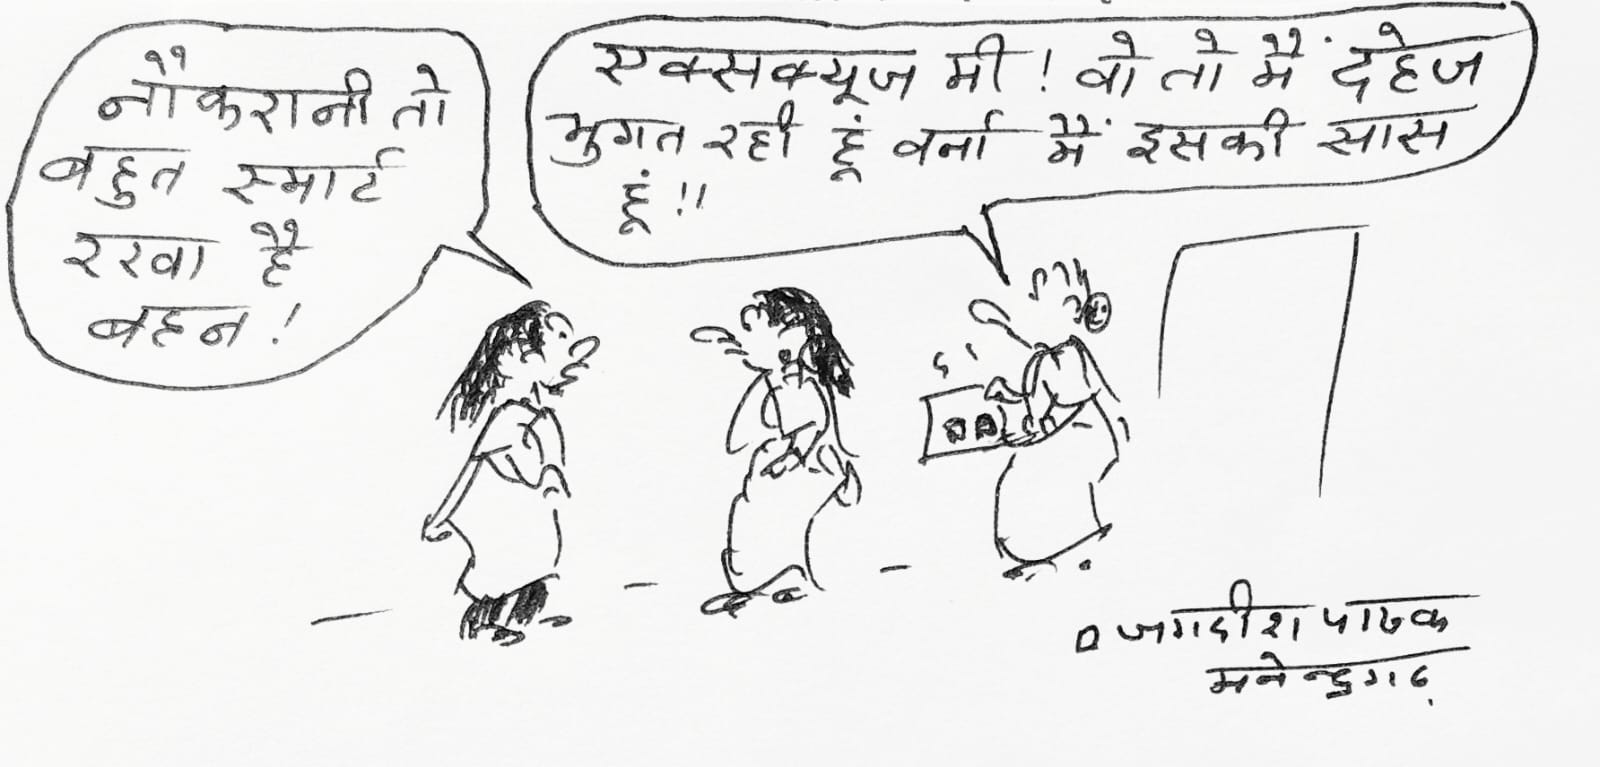 नौकरानी तो
बहुत स्मार्ट
रखा है
बहन !
एक्सक्यूज मी ! वो तो मैं दहेज
भुगत रही हूं वर्ना मैं इसकी सास
हूं !!
जगदीश पाठक
मनेन्द्रगढ़